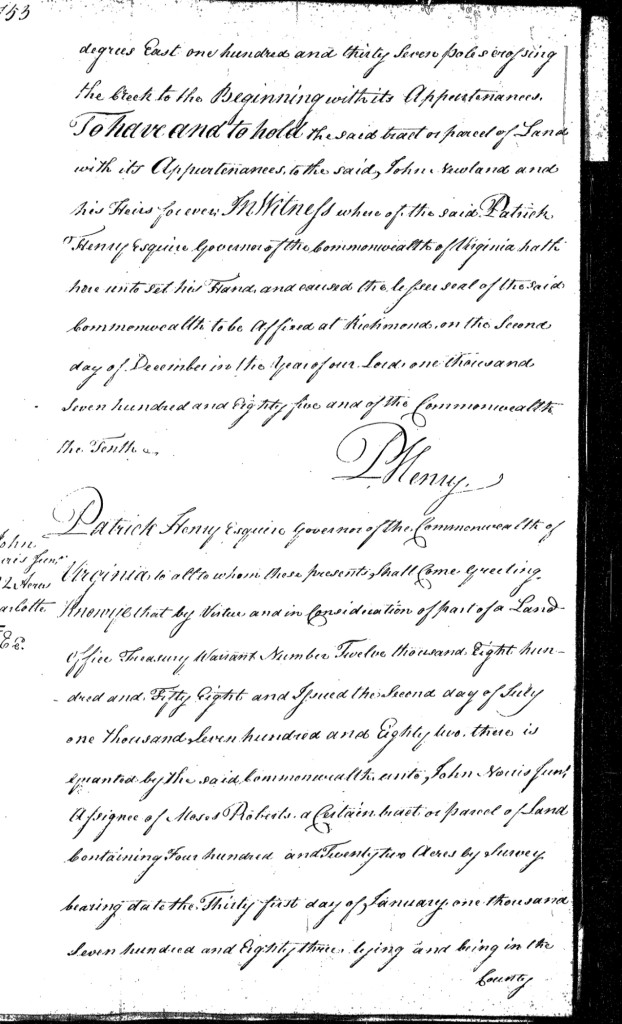 753
degrees East one hundred and thirty Seven poles crossing
the Creek to the Beginning with its Appurtenances.
To have and to hold the said tract or parcel of Land
with its Appurtenances, to the said, John Newland and
his Heirs forever; In Witness where of, the said Patrick
Henry Esquire Governor of the Commonwealth of Virginia hath
here unto set his Hand, and caused the lesser seal of the said
Commonwealth to be Affixed at Richmond, on the Second
day of December in the Year of our Lord, one thousand
Seven hundred and Eighty five and of the Commonwealth
the Tenth
P. Henry.
Patrick Henry Esquire Governor of the Commonwealth of
Virginia, to all to whom these presents, Shall Come Greeting.
Know ye that by Virtue and in Consideration of part of a Land
Office Treasury Warrant Number Twelve thousand Eight hun-
-dred and Fifty Eight and Issued the Second day of July
one thousand Seven hundred and Eighty two, there is
granted by the said Commonwealth unto, John Norris Junr.
Assignee of Moses Roberts, a Certain tract or parcel of Land
Containing Four hundred and Twenty two Acres by Survey,
bearing date the Thirty first day of January, one thousand
Seven hundred and Eighty three, lying and being in the
County
John
rris Junr.
2 Acres
arlotte
Ex.